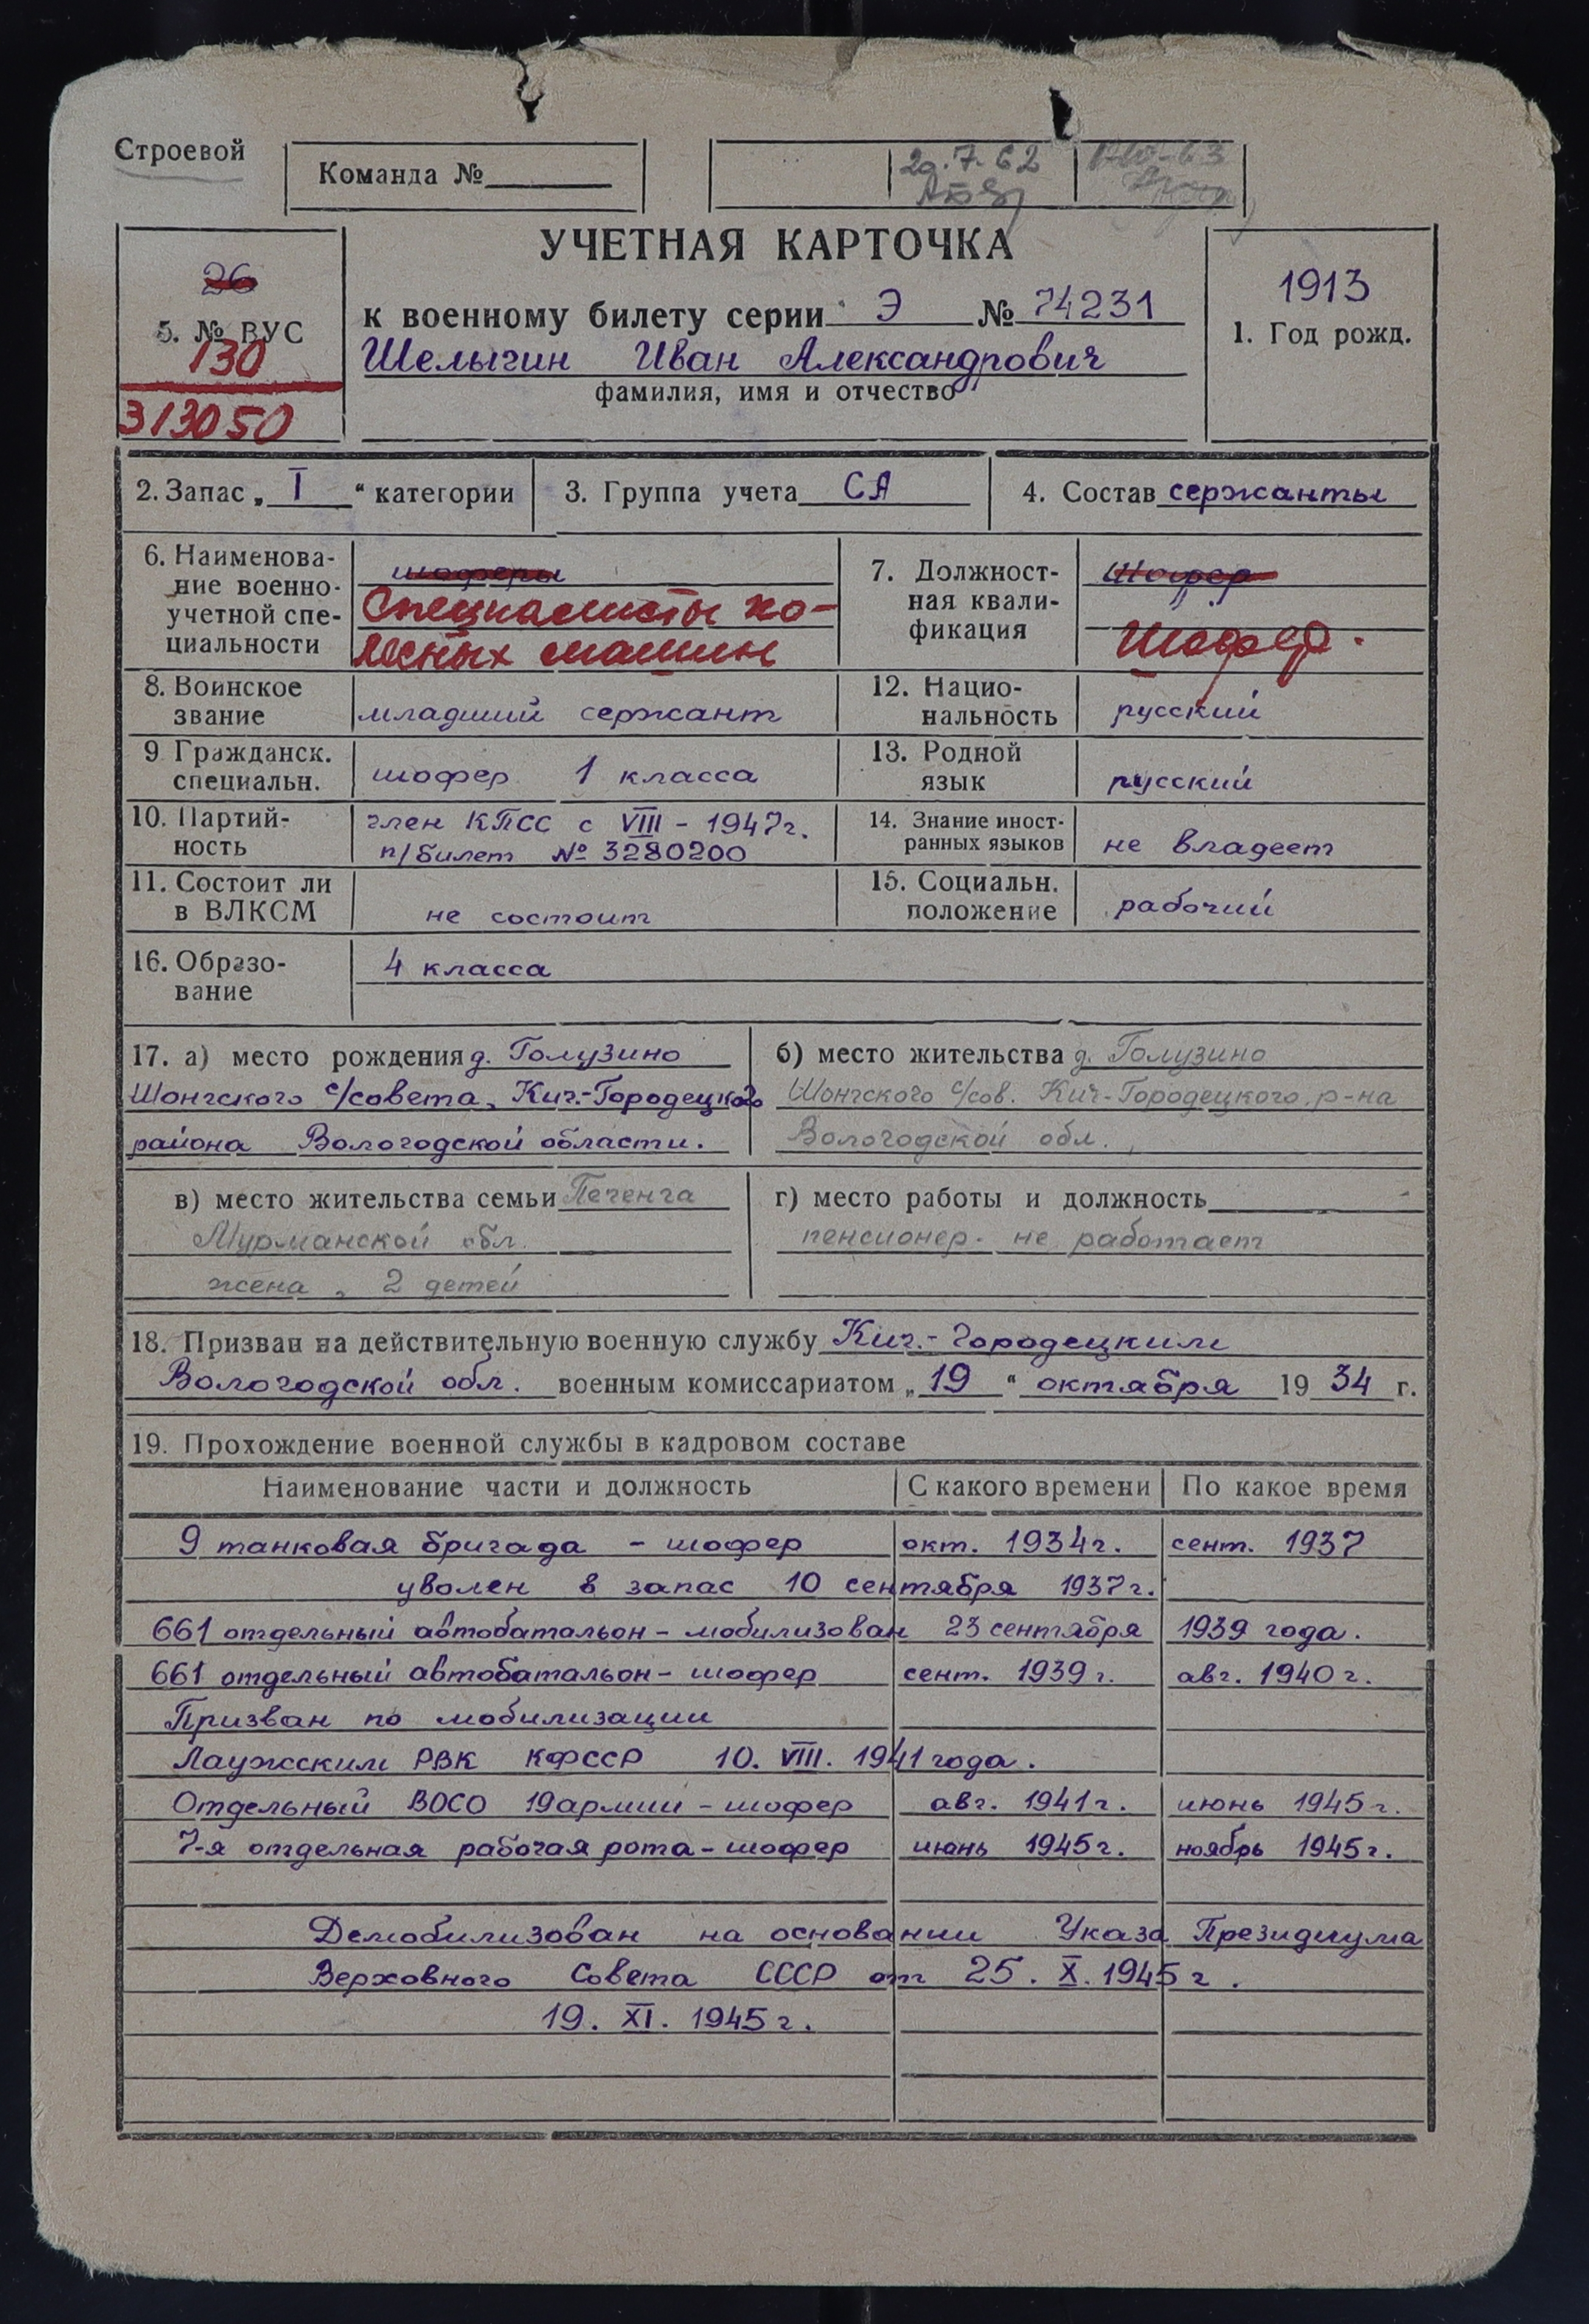 Строевой
Команда №
20.7.62
УЧЕТНАЯ КАРТОЧКА
26
5. № ВУС
130
313050
к военному билету серии Э № 74231
Шелыгин Иван Александрович
фамилия, имя и отчество
1913
1. Год рожд.
2. Запас „ I “ категории
3. Группа учета СА
4. Состав сержанты
6. Наименова-
ние военно-
учетной спе-
циальности
шоферы
Специалисты ко-
лесных машин
7. Должност-
ная квали-
фикация
Шофер
Шофер.
8. Воинское
звание
младший сержант
12. Нацио-
нальность
русский
9 Гражданск.
специальн.
шофер 1 класса
13. Родной
язык
русский
10. Партий-
ность
член КПСС с VIII - 1947г.
п/билет № 3280200
14. Знание иност-
ранных языков
не владеет
11. Состоит ли
в ВЛКСМ
не состоит
15. Социальн.
положение
рабочий
16. Образо-
вание
4 класса
17. а) место рождения д. Голузино
Шонгского с/совета, Кич.-Городецкого
района Вологодской области.
б) место жительства д. Голузино
Шонгского с/сов. Кич-Городецкого р-на
Вологодской обл.
в) место жительства семьи Печенга
Мурманской обл.
жена, 2 детей
г) место работы и должность
пенсионер. не работает
18. Призван на действительную военную службу Кич.-Городецким
Вологодской обл. военным комиссариатом „ 19 “ октября 19 34 г.
19. Прохождение военной службы в кадровом составе
Наименование части и должность С какого времени По какое время
9 танковая бригада - шофер окт. 1934г. сент. 1937
уволен в запас 10 сентября 1937г.
661 отдельный автобатальон - мобилизован 23 сентября 1939 года.
661 отдельный автобатальон - шофер сент. 1939г. авг. 1940г.
Призван по мобилизации
Лаужским РВК КФССР 10. VIII. 1941 года.
Отдельный ВОСО 19 армии - шофер авг. 1941г. июнь 1945г.
7-я отдельная рабочая рота - шофер июнь 1945г. ноябрь 1945г.
Демобилизован на основании Указа Президиума
Верховного Совета СССР от 25. X. 1945г.
19. XI. 1945г.